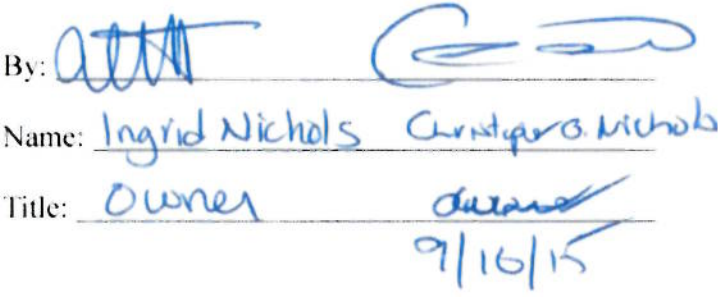 By:
Name: Ingrid Nichols Christopher O. Nichols
Title: Owner owner
9/16/15